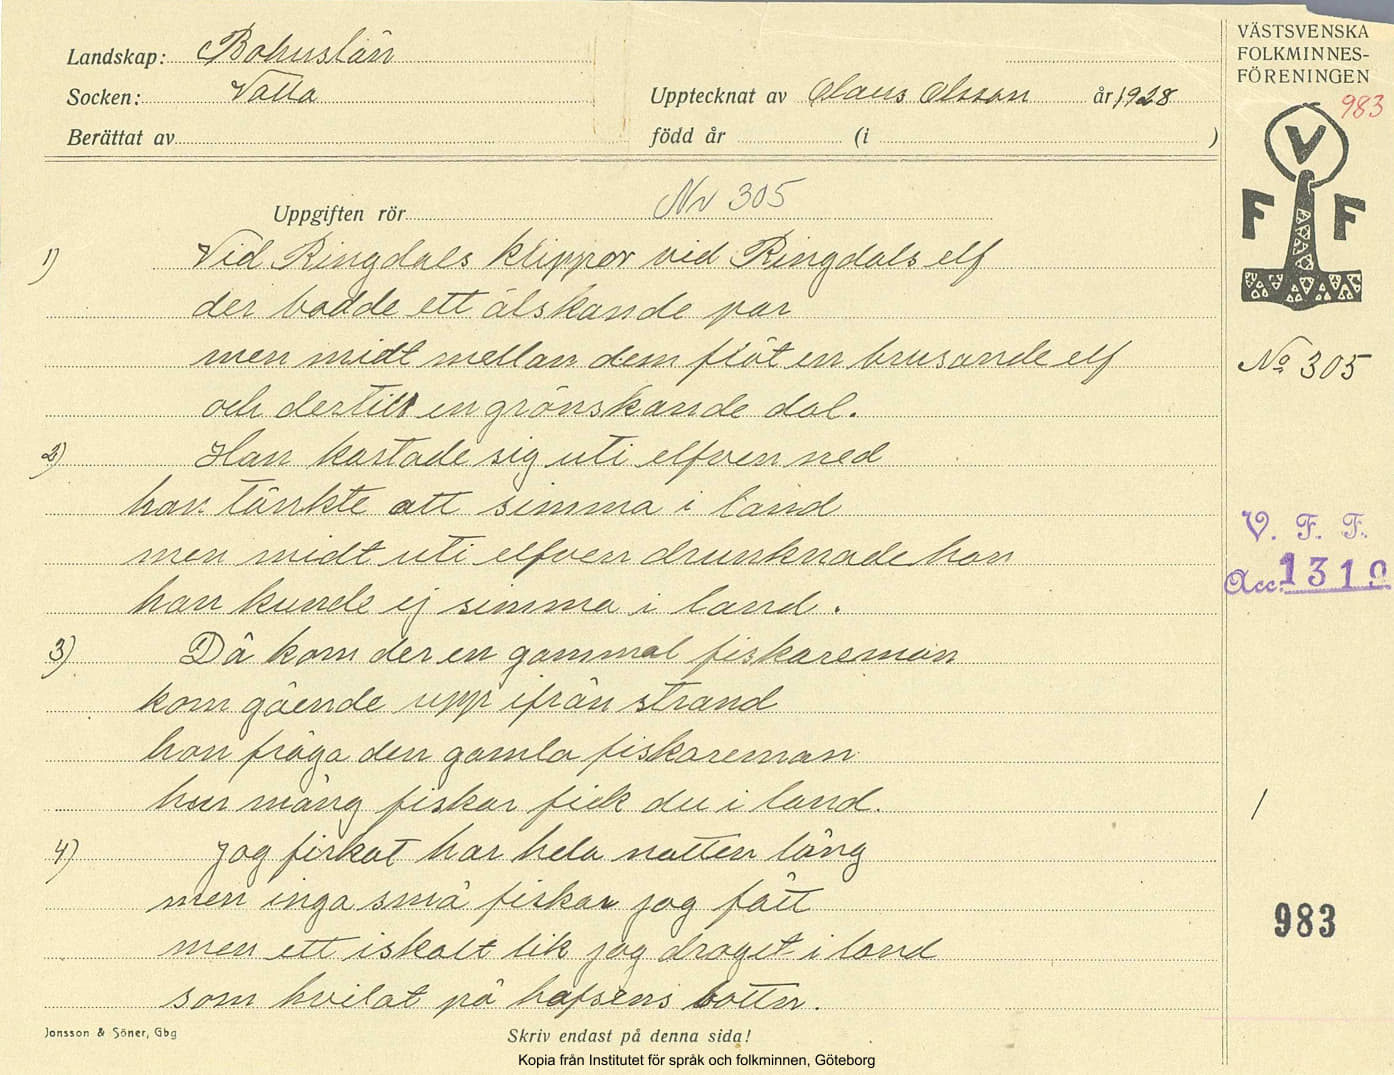 Landskap: Bohuslän
Socken: Valla
Upptecknat av Olaus Olsson år 1928
Berättat av
född år (i )
VÄSTSVENSKA
FOLKMINNES-
FÖRENINGEN
983
V
F F
Uppgiften rör Nr 305
1) Vid Ringdals klippor vid Ringdals elf
der bodde ett älskande par
men midt mellan dem flöt en brusande elf
och dertill en grönskande dal.
No 305
2) Han kastade sig uti elfven ned
han tänkte att simma i land
men midt uti elfven drunknade han
han kunde ej simma i land.
V. F. F.
Acc. 1319
3) Då kom der en gammal fiskareman
kom gående upp ifrån strand
hon fråga den gamla fiskareman
hur mång fiskar fick du i land.
/
4) jag fiskat har hela natten lång
men inga små fiskar jag fått
men ett iskalt lik jag draget i land
som hvilat på hafsens botten.
983
Jonsson & Söner, Gbg
Skriv endast på denna sida!
Kopia från Institutet för språk och folkminnen, Göteborg